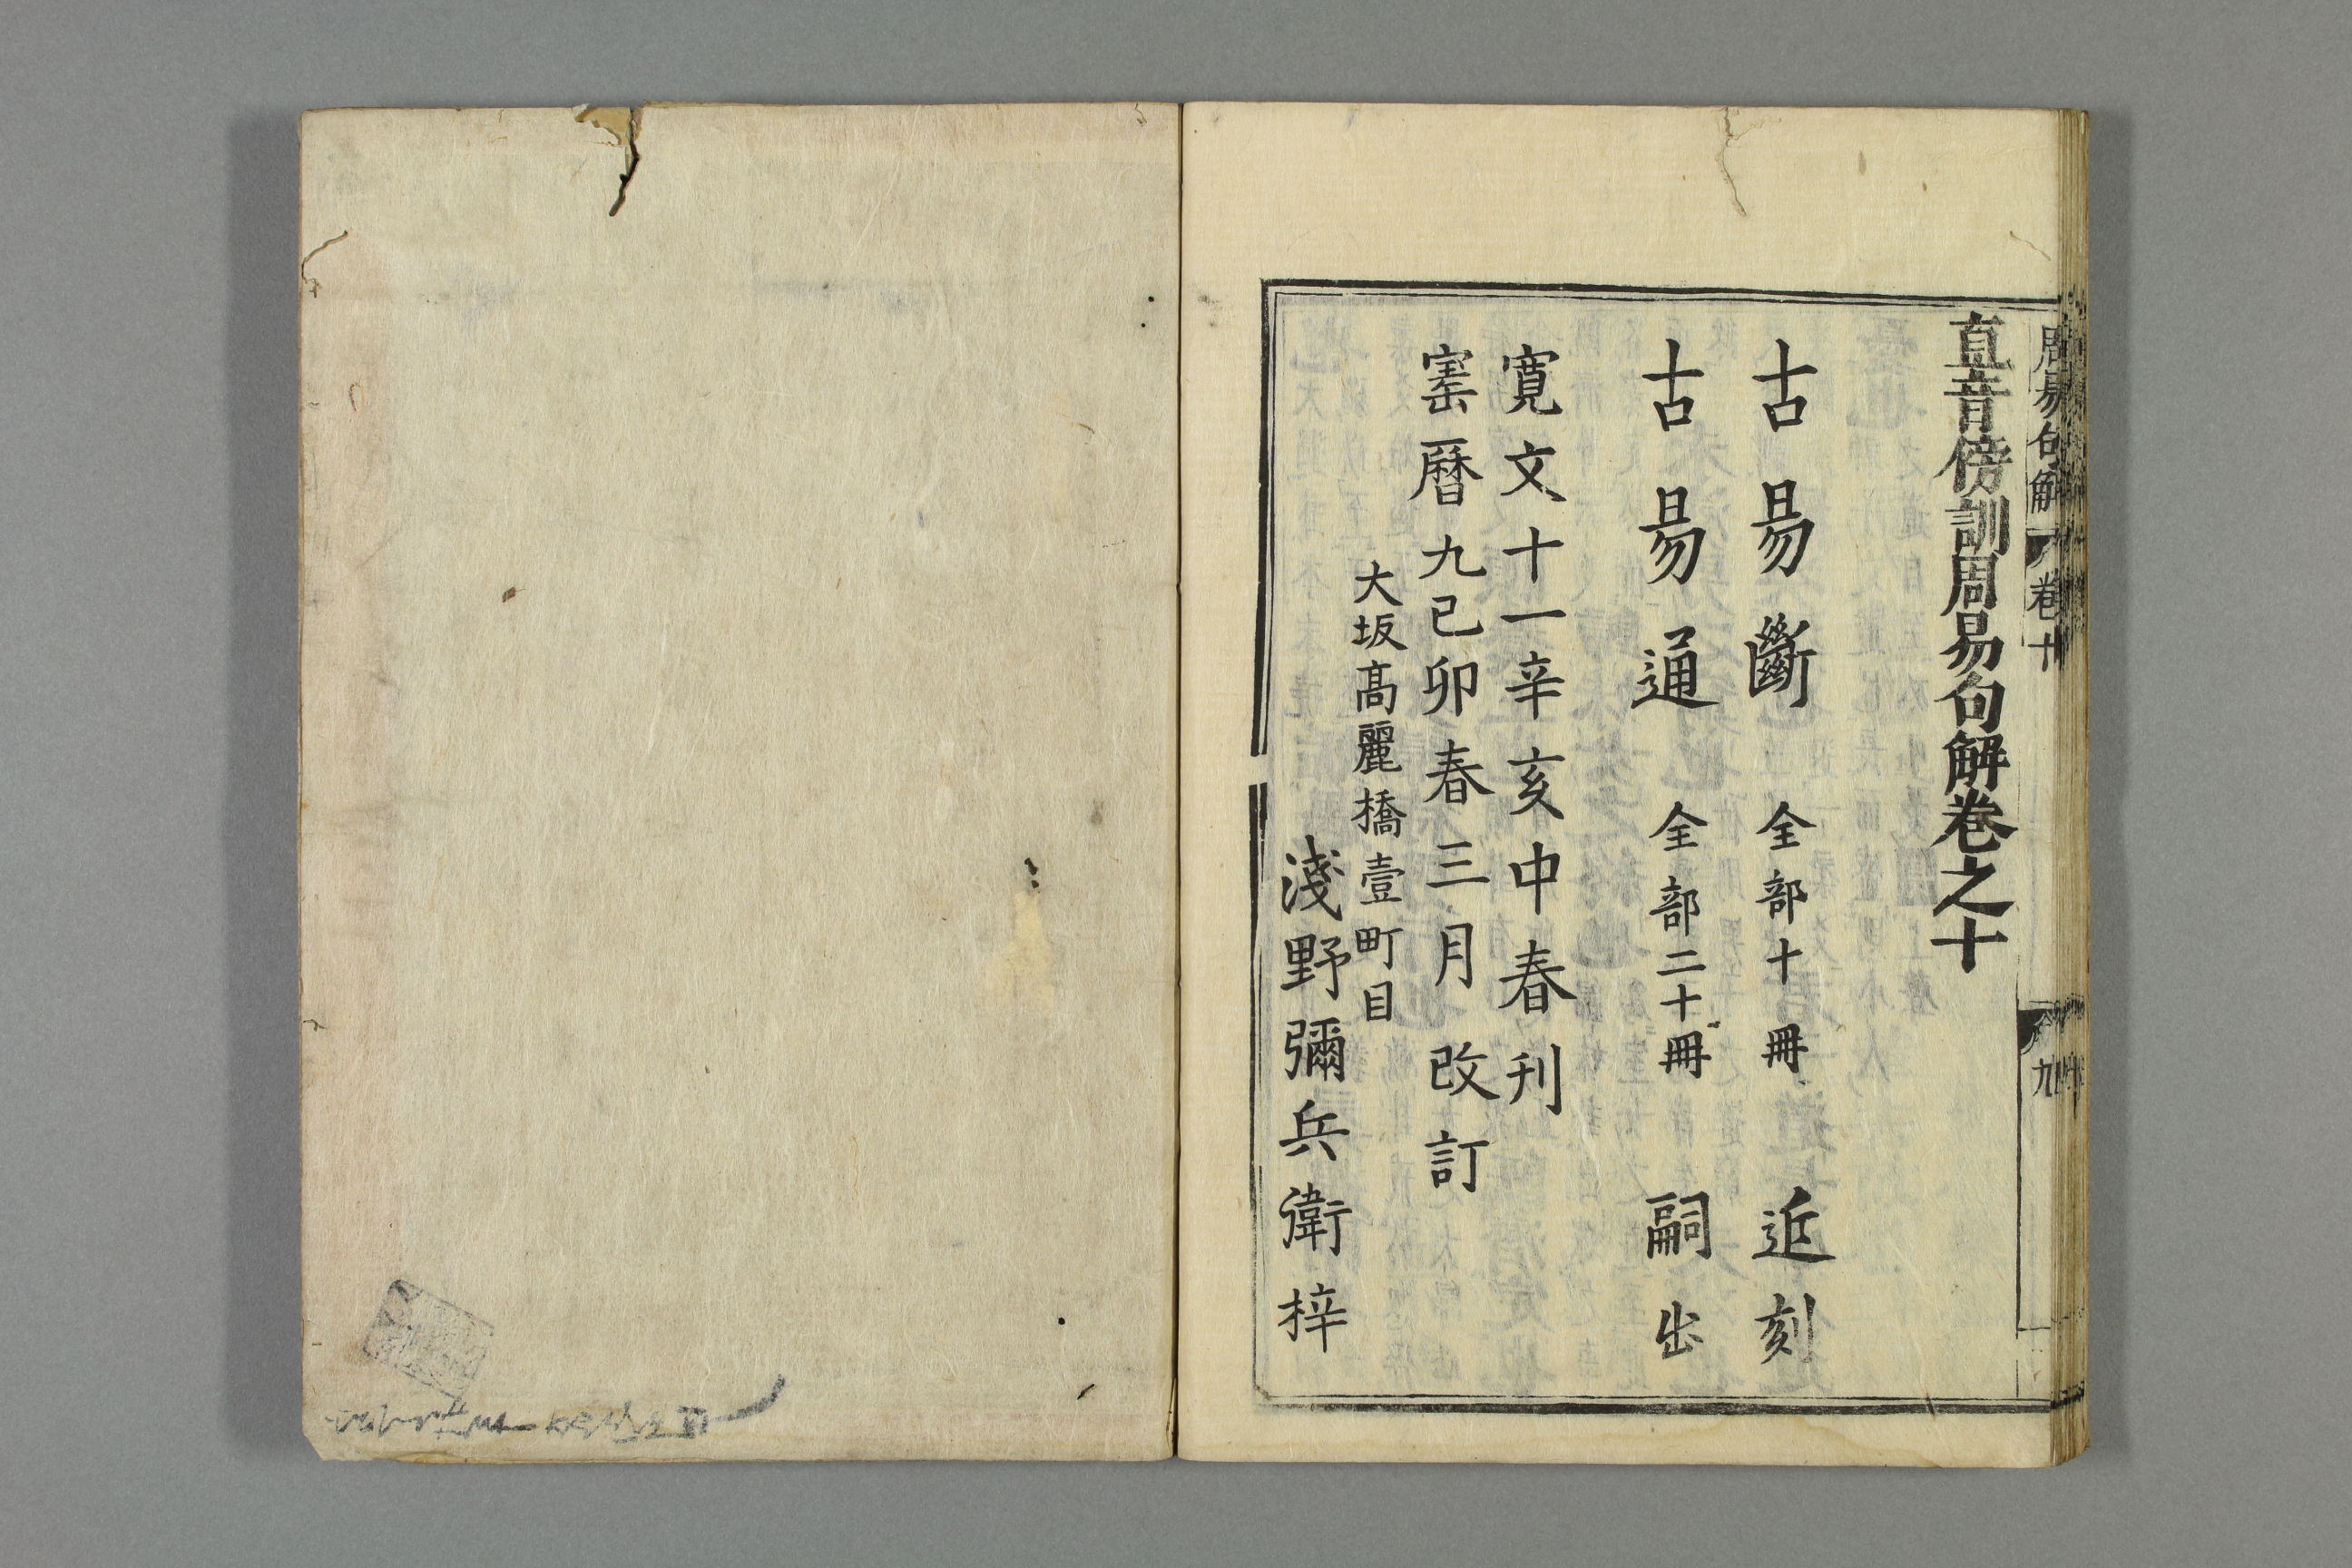 周易句解 卷十 九
直音傍訓周易句解卷之十
古易斷 全部十冊 近刻
古易通 全部二十冊 嗣出
寛文十一辛亥中春刊
寚暦九己卯春三月改訂
大坂高麗橋壹町目
淺野彌兵衛梓